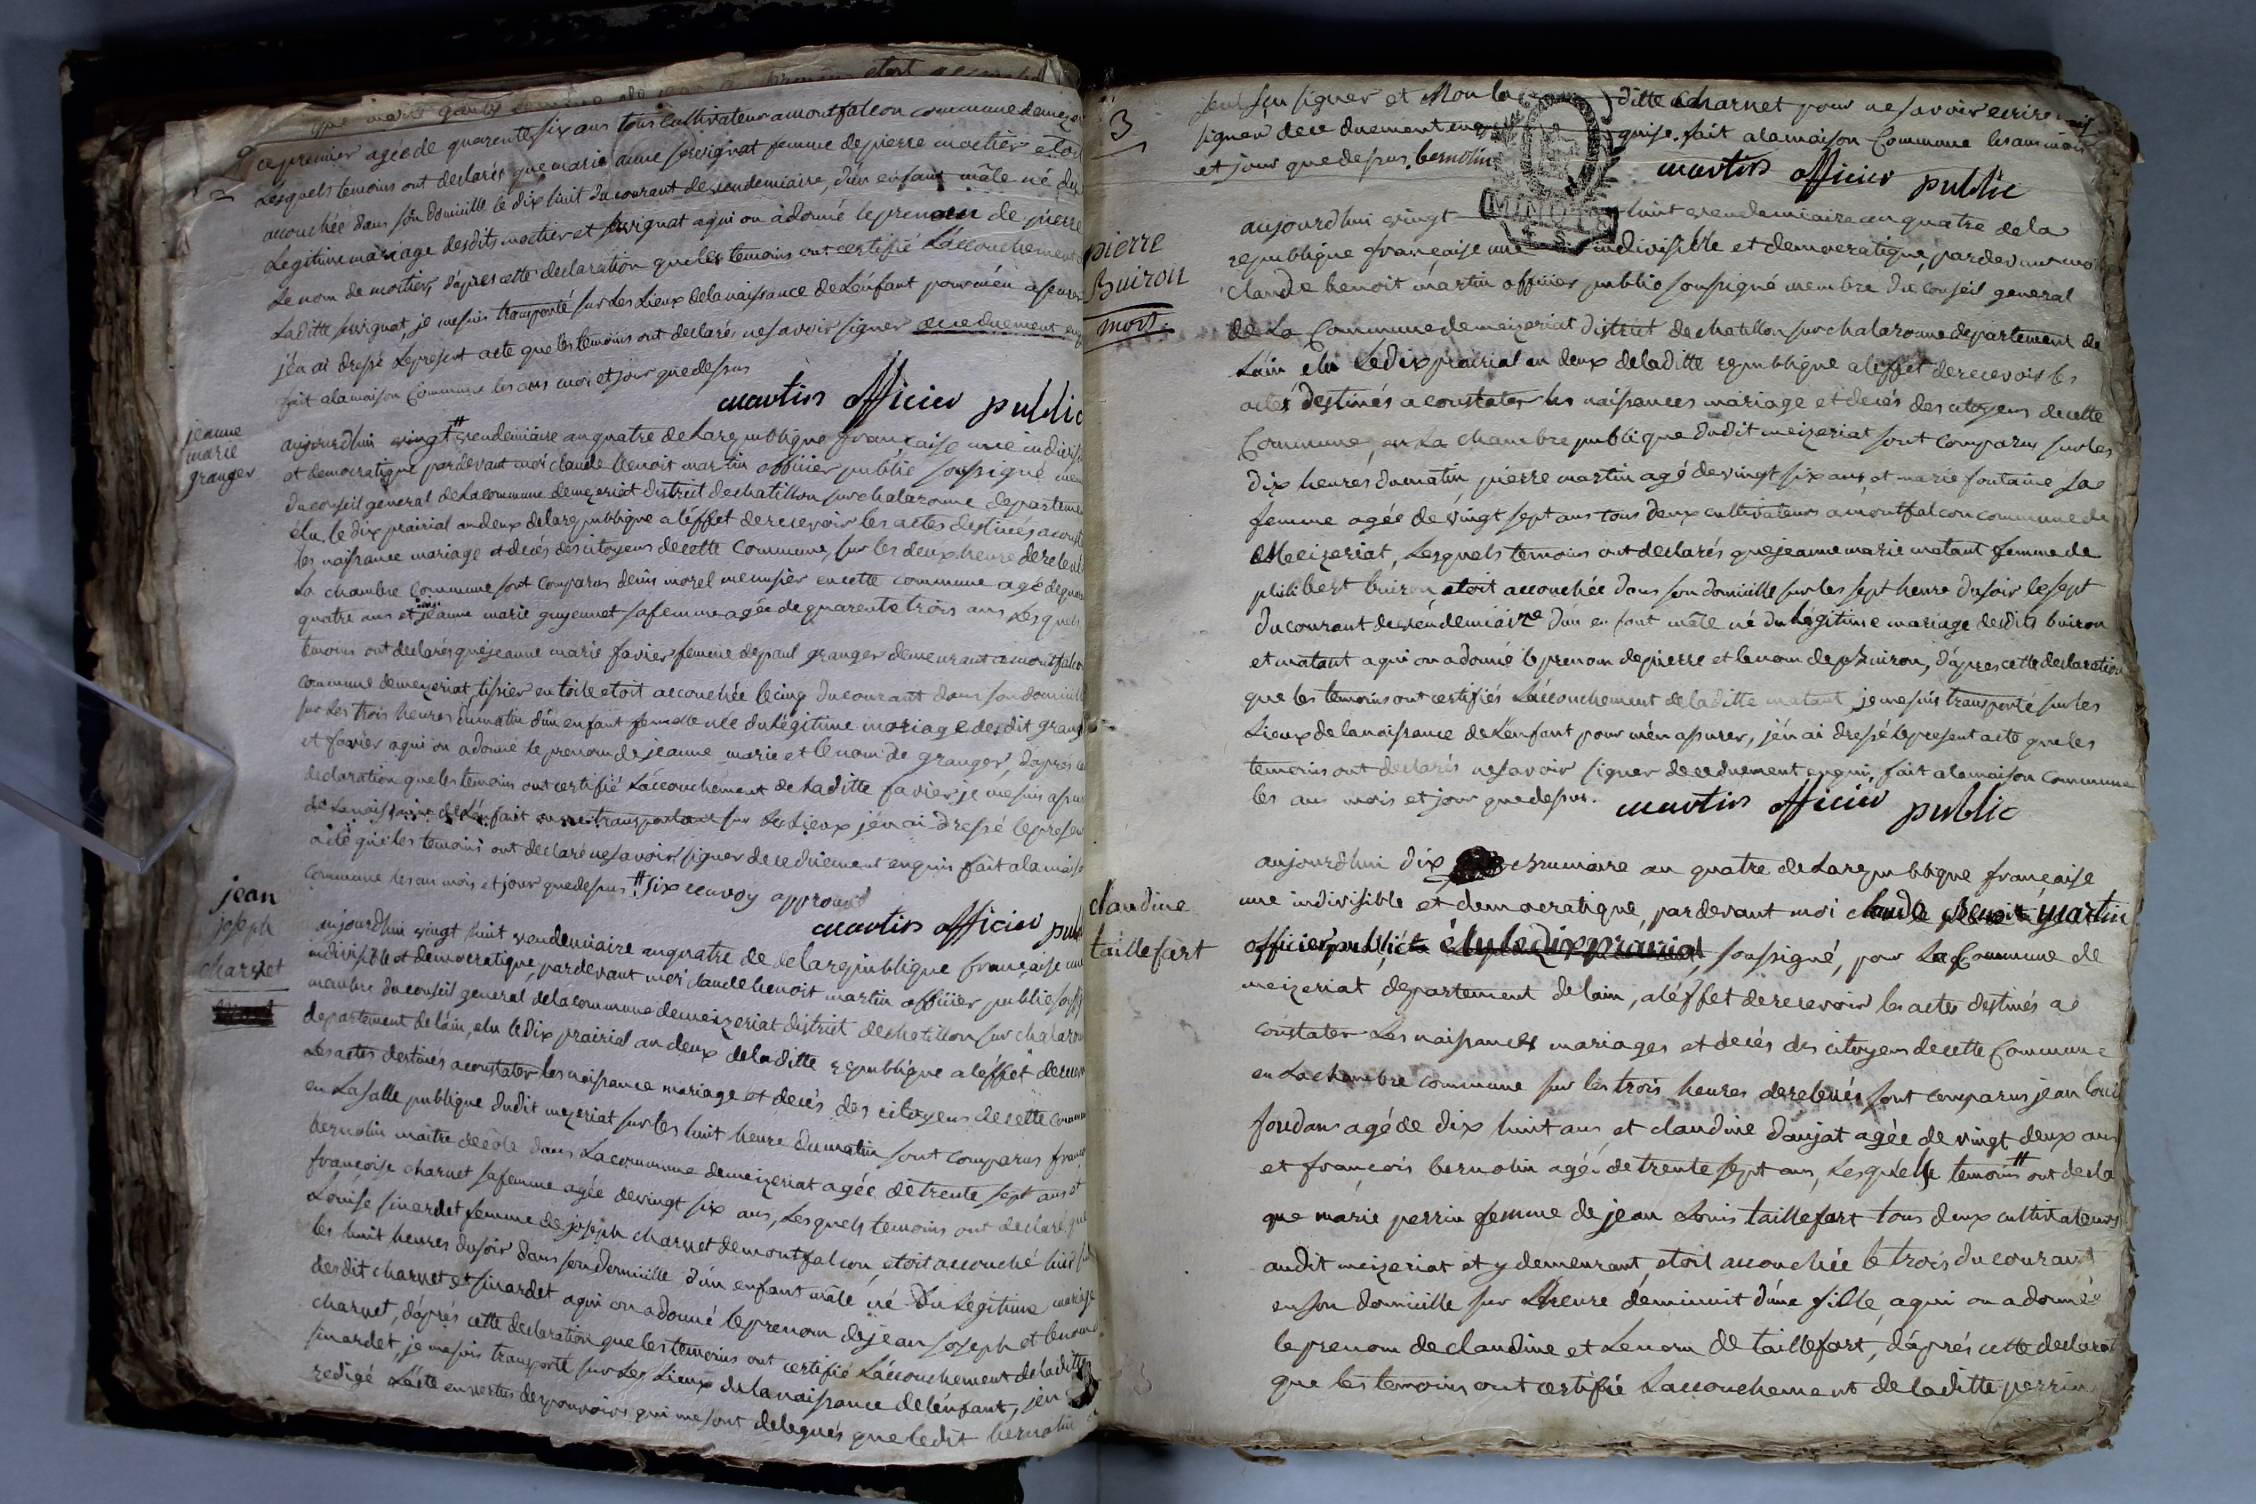 ce premier agée de quarente six ans tous cultivateurs a montfalcon commune demeze
Lesquels temoins ont declarés que marie anne servignat femme de pierre moctier etoit
accouchée dans son domicille le dix huit du courant de vendemiaire, d'un enfant mâle né du
Legitime màriage desdits moctier et servignat a qui on à donné le prenom de pierre
Le nom de moctier, d'àpres cette declaration que les temoins ont certifié L'accouchement
Laditte servignat, je mesuis transporté sur Les Lieux delanaissance de L'enfant pour mén assurer
j'en ai dressé Lepresent acte que les temoins ont declaré nesavoir signer dece duement enq
fait alamaison Commune les ans moi et jour quedessus
martin officier public
jeanne
marie
granger
aujourdhui vingt # vendemiaire an quatre de Larepublique française une indivisi
et democratique pardevant moi claude Benoit martin officier public soussigné mem
du conseil general de Lacommune demezeriat district dechatillon sur chalaronne departeme
élu le dix prairial an deux delarepublique a léffet derecevoir les actes destinés acons
les naissance mariage et decés des citoyens decette commune, sur les deux heure dereleve
La chambre commune sont comparus denis morel meunsier en cette commune agé dequa
quatre ans et jeanne marie guyennet safemme agée de quarente trois ans Lesquels
temoins ont declarés quéjeanne marie favier femme depaul granger demeurant amontfalco
commune demezeriat tissier en toile etoit accouchée le cinq ducourant dans son domicille
sur Les trois heures dumatin d'un enfant femelle née du Légitime mariage desdit grang
et favier aqui on adonné le prenom de jeanne marie et le nom de granger, d'apres ce
declaration que les temoins ont certifié L'accouchement de Laditte favier je me suis assu
de Lanaissance de L'énfant sur Les Lieux jén ai dressé lepresen
acte que les temoins ont declaré nesavoir signer dece duement enquis fait alamaiso
Commune les an mois et jour quedessus # Six renvoy approuvé
martin officier publ
jean
joseph
charnet
aujourdhui vingt huit vendemiaire anquatre de delarepublique française une
indivisible et democratique, pardevant moi claude benoit martin officier public souss
membre du conseil general delacommune demeizeriat district dechatillon sur chalaron
departement delàin, elu ledix prairial an deux deladitte republique aléffet derecev
Les actes destinés aconstater les naissance mariage et decés des citoyens decette commun
en Lasalle publique dudit mezeriat sur les huit heure dumatin sont comparus franç
bernolin maitre decôle dans Lacommune demeizeriat agée detrente sept ans et
françoise charnet safemme agée devingt six ans, Lesquels temoins ont declaré que
Louise sinardet femme de joseph charnet demontfalcon etoit accouché hier sur
les huit heures dusoir dans son domicille d'un enfant mâle né du Legitime mariage
desdit charnet et sinardet aqui on adonné leprenom dejean joseph et lenom
charnet, d'àprés cette declaration que les temoins ont certifié L'accouchement delàditte
sinardet, je mesuis transporté sur Les Lieux delanaissance delénfant, jen
redigé L'acte en vertus des pouvoirs qui me sont delegués que ledit bernolin
3
seul seu signer et Non la ditte charnet pour ne savoir ecrire
signer dece duement enquise. fait alamaison Commune les an mois
et jour quedessus bernolin
martin officier public
MINU
pierre
Buiron
mort
aujourdhui vingt huit vendemiaire an quatre dela
republique française une indivisible et democratique, pardevant moi
claude benoit martin officier public soussigné membre du conseil general
de La Commune demeizeriat district dechatillon sur chalaronne departement de
Làin elu Ledix prairial an deux delàditte republique aléffet derecevoir les
actes destinés aconstater les naissances màriage et decés des citoyens decette
Commune, en La chambre publique dudit meizeriat sont comparus sur les
dix heurés dumatin, pierre martin agé devingt six ans, et marie fontaine sa
femme agée de vingt sept ans tous deux cultivateurs amontfalcon commune de
Meizeriat, Lesquels temoins ont declarés quejeanne marie matant femme de
philibert buiron, etoit accouchée dans son domicille sur les sept heure dusoir le sept
du courant de vendemiaire d'un enfant mâle né du Légitime mariage desdits buiron
et matant aqui on adonné le prenom depierre et lenom de Buiron, d'apres cette declaration
que les temoins ont certifiés L'accouchement de laditte matant, je mesuis transporté sur les
Lieux delanaissance de L'enfant pour mén assurer, jén ai dressé lepresent acte que les
temoins ont declarés nesavoir signer dece duement enquis, fait alamaison commune
les ans mois et jour quedessus. martin officier public
claudine
taillefert
aujourdhui dix Brumaire an quatre de Larepublique française
une indivisible et democratique, pardevant moi claude Benoit Martin
officier public élu le dix prairial, soussigné, pour La Commune de
meizeriat departement delain, aléffet derecevoir les actes destinés a
constater Les naissances mariages et decés des citoyens decette Commune
en Lachambre commune sur les trois heures derelevés sont comparus jean louis
foudans agé de dix huit ans, et claudine daujat agée de vingt deux ans
et françois bernolin agée detrente sept ans, Lesquelle temoins # ont decla
que marie perrin femme de jean Louis taillefart tous deux cultivateurs
audit meizeriat et y demeurant, etoit accouchée le trois du courant
en son domicille sur L'heure deminuit d'une fille, aqui on adonné
leprenom de claudine et Lenom de taillefart, d'àprés cette declarat
que les temoins ont certifié L'accouchement de laditte perrin